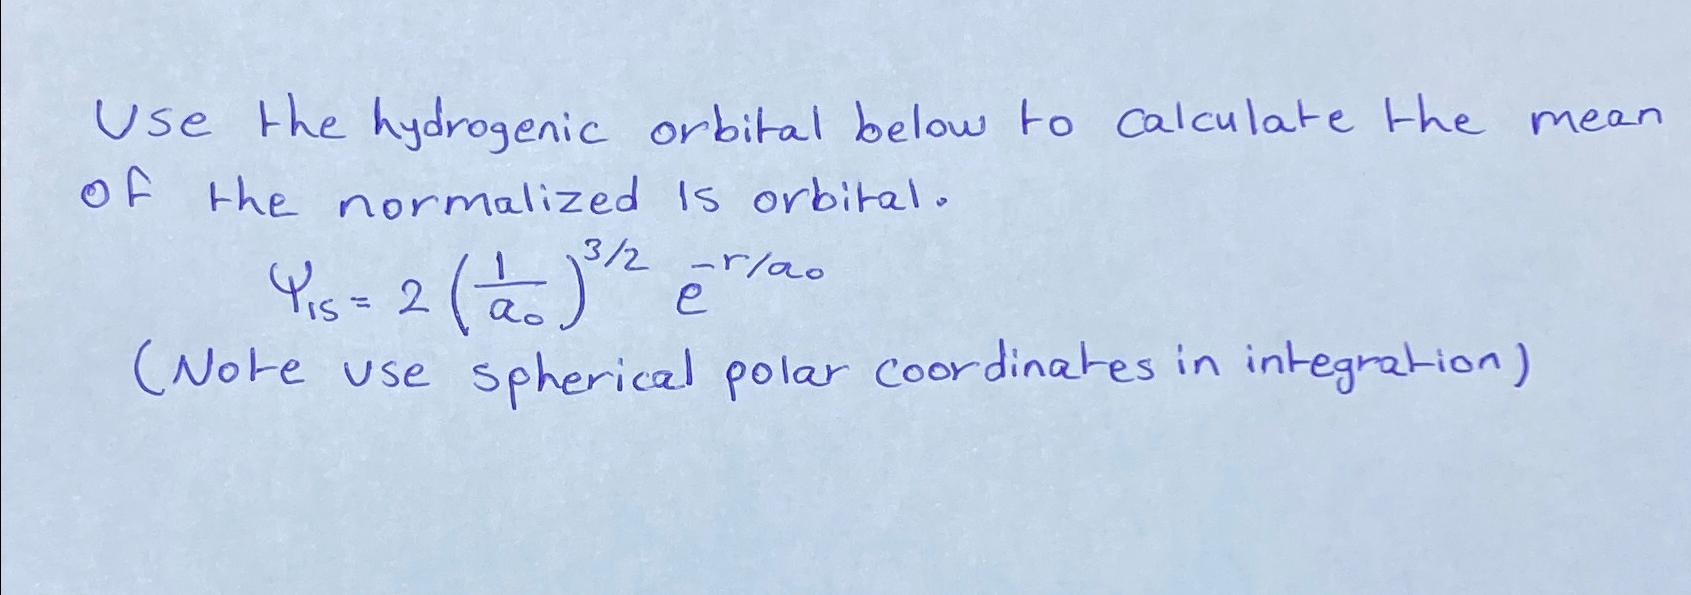 Use the hydrogenic orbital below to calculate the mean
of the normalized 1s orbital.
Ψ₁ₛ = 2 (1/a₀)^3/2 e^-r/a₀
(Note use spherical polar coordinates in integration)